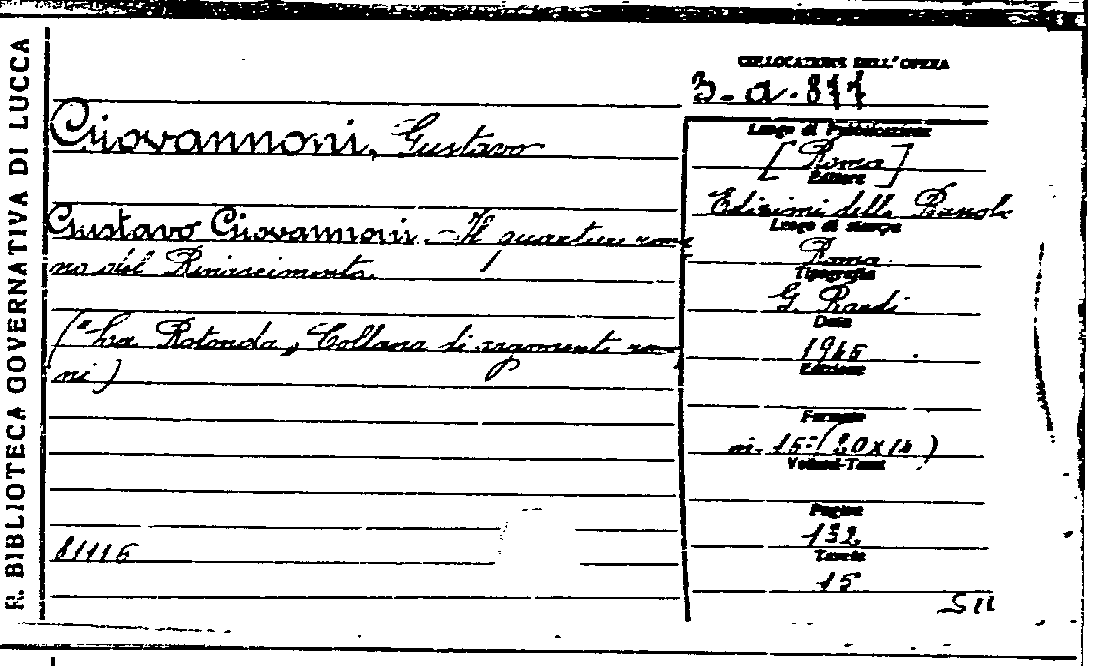 R. BIBLIOTECA GOVERNATIVA DI LUCCA
COLLOCAZIONE DELL'OPERA
3-a-877
Giovannoni, Gustavo
Gustavo Giovannoni. - Il quartiere roma
no del Rinascimento.
("La Rotonda" Collana di argomenti roma
ni)
81116
Luogo di Pubblicazione
[Roma]
Editore
Edizioni della Bussola
Luogo di stampa
Roma
Tipografia
G. Bardi
Data
1946
Edizione
Formato
in-16° (20x14)
Volumi-Tomi
Pagine
132
Tavole
15